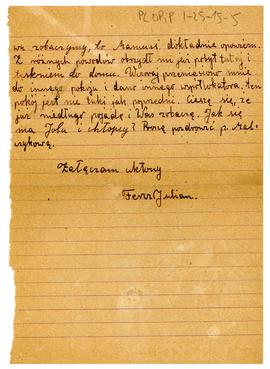 PL OPiP 1-25-15-5
wu zobaczymy, to Mamusi dokładnie opowiem.
Z różnych powodów obrzydł mi już pobyt tutaj i
tęsknię do domu. Wczoraj przeniesiono mnie
do innego pokoju i dano innego współlokatora. Ten
pokój jest nie taki jak poprzedni. Cieszę się, że
już niedługo pojadę i Was zobaczę. Jak się
ma Jola i chłopcy? Proszę pozdrowić p. Mal-
czykową.
Załączam ukłony
Ferys Julian.